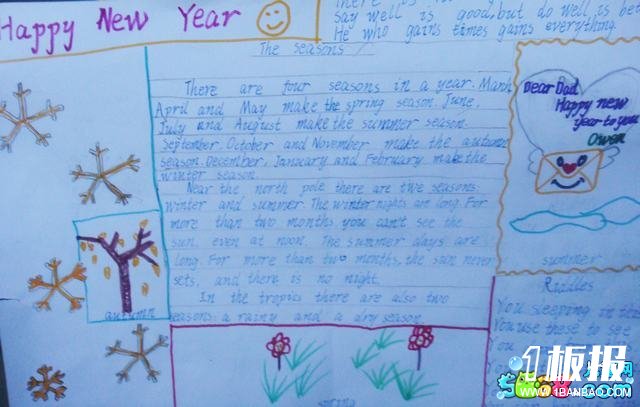 Happy New Year
Say well is good, but do well is
He who gains times gains everything.
The seasons
There are four seasons in a year. March
April and May make the spring season. June,
July and August make the summer season.
September, October and November make the autumn
season. December, January and February make the
winter season.
Near the north pole there are two seasons:
winter and summer. The winter nights are long. For
more than two months you can't see the
sun, even at noon. The summer days are
long. For more than two months, the sun never
sets, and there is no night.
In the tropics there are also two
seasons: a rainy and a dry season.
autumn
spring
Dear Dad
Happy new
year to you
Owen
summer
Riddles
You sleeping in
You use these to see
You
1板报
WWW.1BANBAO.COM